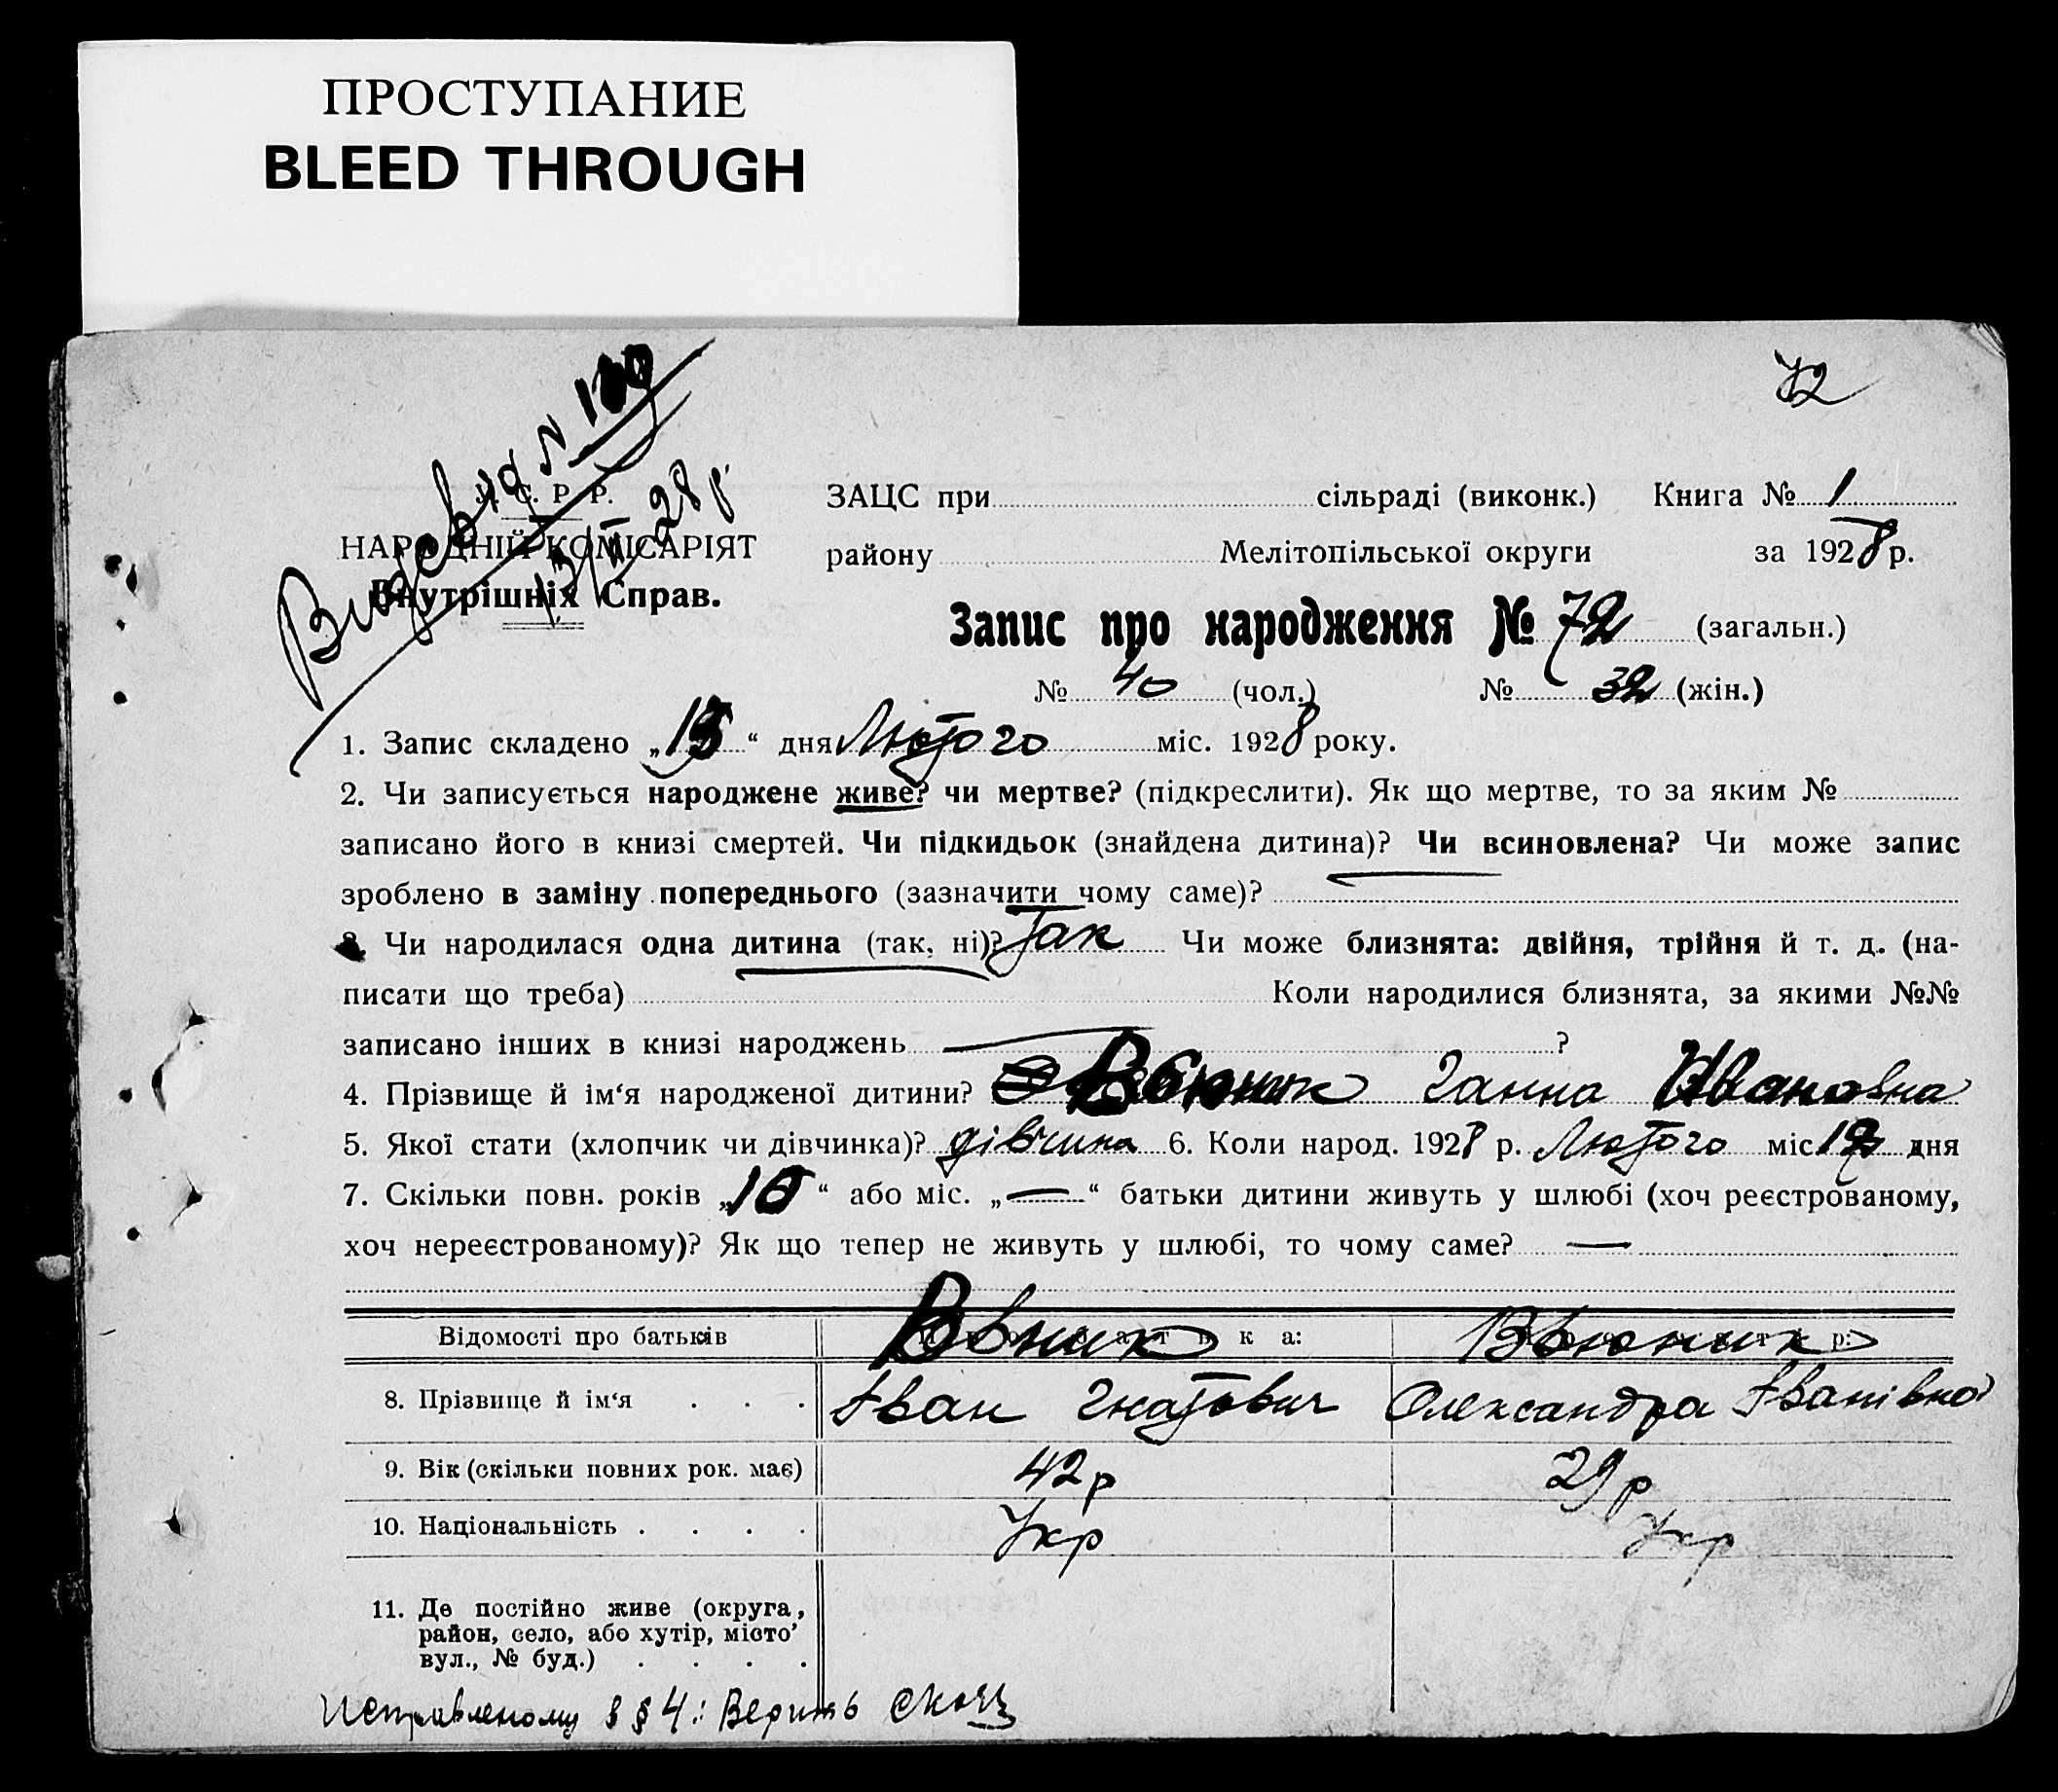 ПРОСТУПАНИЕ
BLEED THROUGH
72
С. Р. Р.
НАРОДНІЙ КОМІСАРІЯТ
Внутрішніх Справ.
28 р.
ЗАЦС при сільраді (виконк.) Книга № 1
району Мелітопільської округи за 1928 р.
Запис про народження № 72 (загальн.)
№ 40 (чол.) № 32 (жін.)
1. Запис складено „ “ дня Лютого міс. 1928 року.
2. Чи записується народжене живе? чи мертве? (підкреслити). Як що мертве, то за яким №
записано його в книзі смертей. Чи підкидьок (знайдена дитина)? Чи всиновлена? Чи може запис
зроблено в заміну попереднього (зазначити чому саме)?
Чи народилася одна дитина (так, ні)? Так Чи може близнята: двійня, трійня й т. д. (на-
писати що треба) Коли народилися близнята, за якими №№
записано інших в книзі народжень —?
4. Прізвище й ім‘я народженої дитини? Ганна Ивановна
5. Якої стати (хлопчик чи дівчинка)? дівчина 6. Коли народ. 1928 р. Лютого міс. дня
7. Скільки повн. років „10“ або міс. „—“ батьки дитини живуть у шлюбі (хоч реєстрованому,
хоч нереєстрованому)? Як що тепер не живуть у шлюбі, то чому саме? —
Відомості про батьків Вьюник
8. Прізвище й ім‘я . . . Іван Гнатович Олександра Іванівна
9. Вік (скільки повних рок. має) 42 р 29 р
10. Національність . . . . Укр Укр
11. Де постійно живе (округа,
район, село, або хутір, місто’
вул., № буд.) . . . .
Исправленому в § 4: Верить